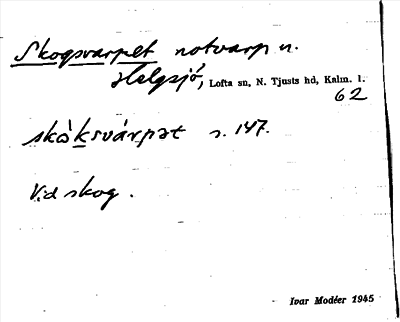 Skogsvarpet notvarp n.
Helgsjö, Lofta sn, N. Tjusts hd, Kalm. l.
62
skòksvárpət s. 147.
Vid skog.
Ivar Modéer 1945